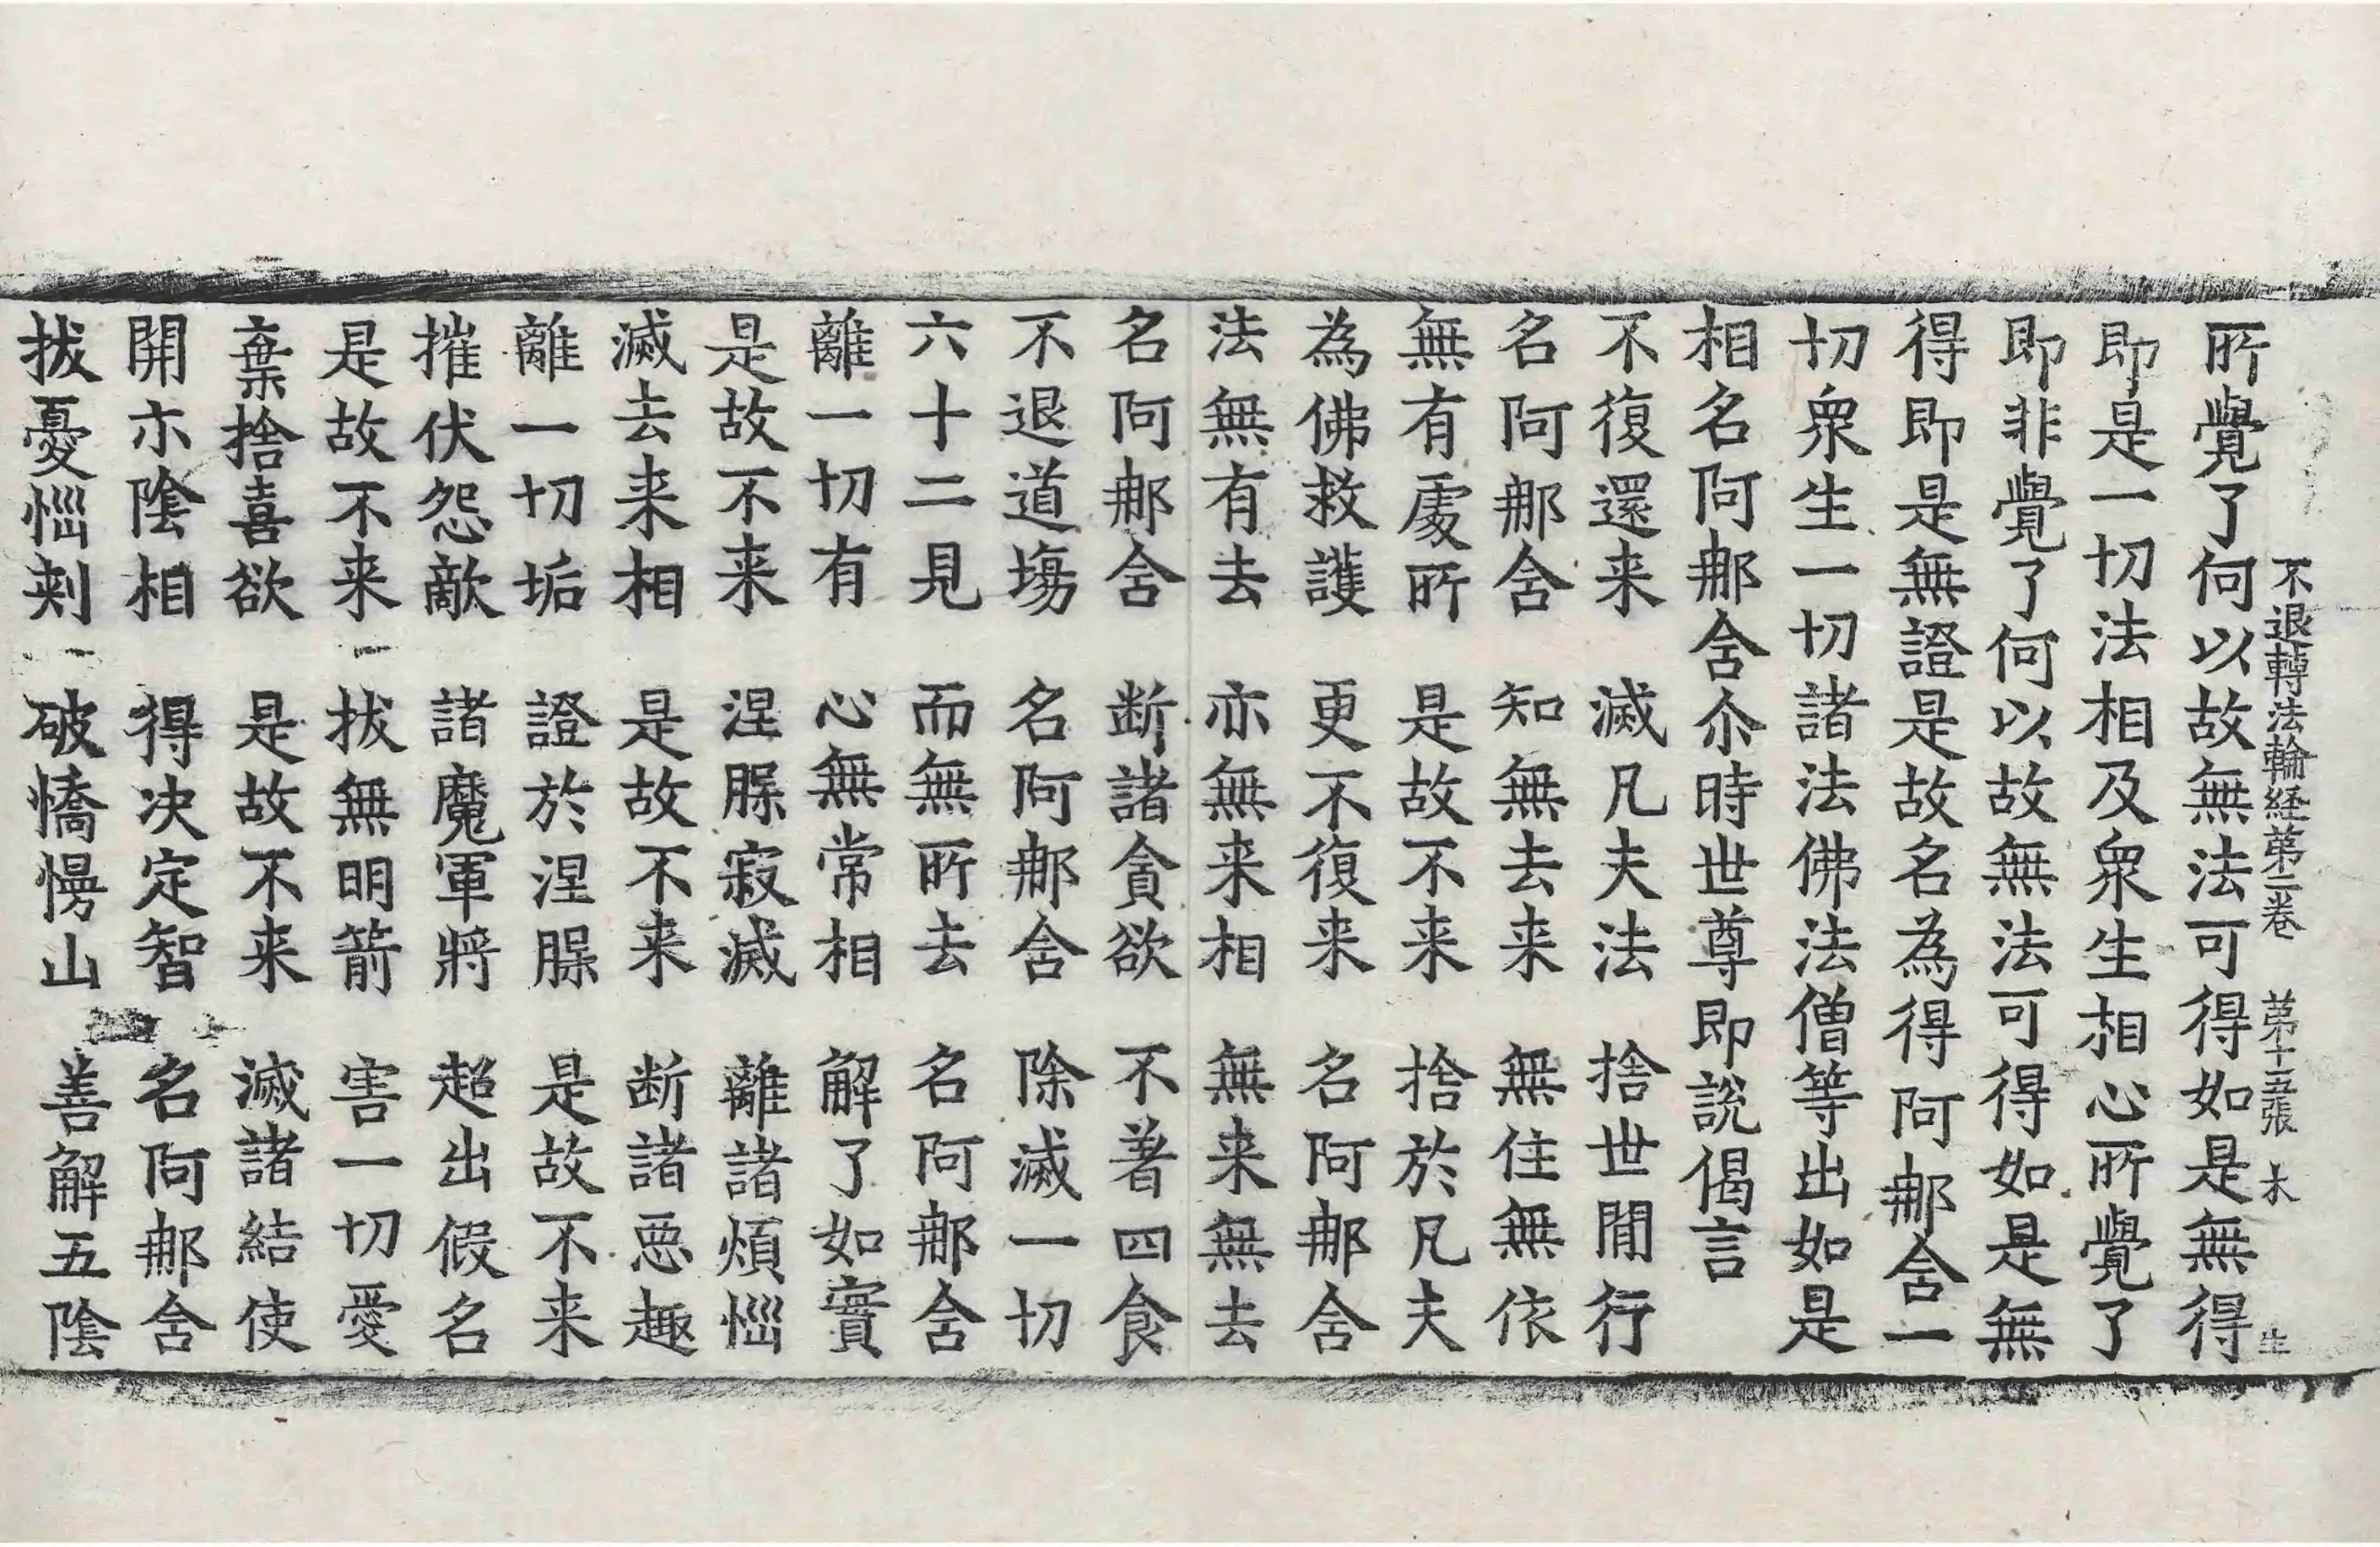 不退轉法輪経第二卷　第十五張　木
所覺了何以故無法可得如是無得
即是一切法相及衆生相心所覺了
即非覺了何以故無法可得如是無
得即是無證是故名為得阿那含一
切衆生一切諸法佛法僧等出如是
相名阿那含尒時世尊即說偈言
不復還来　滅凡夫法　捨世閒行
名阿那含　知無去来　無住無依
無有處所　是故不来　捨於凡夫
為佛救護　更不復来　名阿那含
法無有去　亦無来相　無来無去
名阿那含　断諸貪欲　不著四食
不退道場　名阿那含　除滅一切
六十二見　而無所去　名阿那含
離一切有　心無常相　解了如實
是故不来　涅槃寂滅　離諸煩惱
滅去来相　是故不来　断諸惡趣
離一切垢　證於涅槃　是故不来
摧伏怨敵　諸魔軍將　超出假名
是故不来　拔無明箭　害一切愛
棄捨喜欲　是故不来　滅諸結使
開示陰相　得决定智　名阿那含
拔憂惱刺　破憍慢山　善解五陰